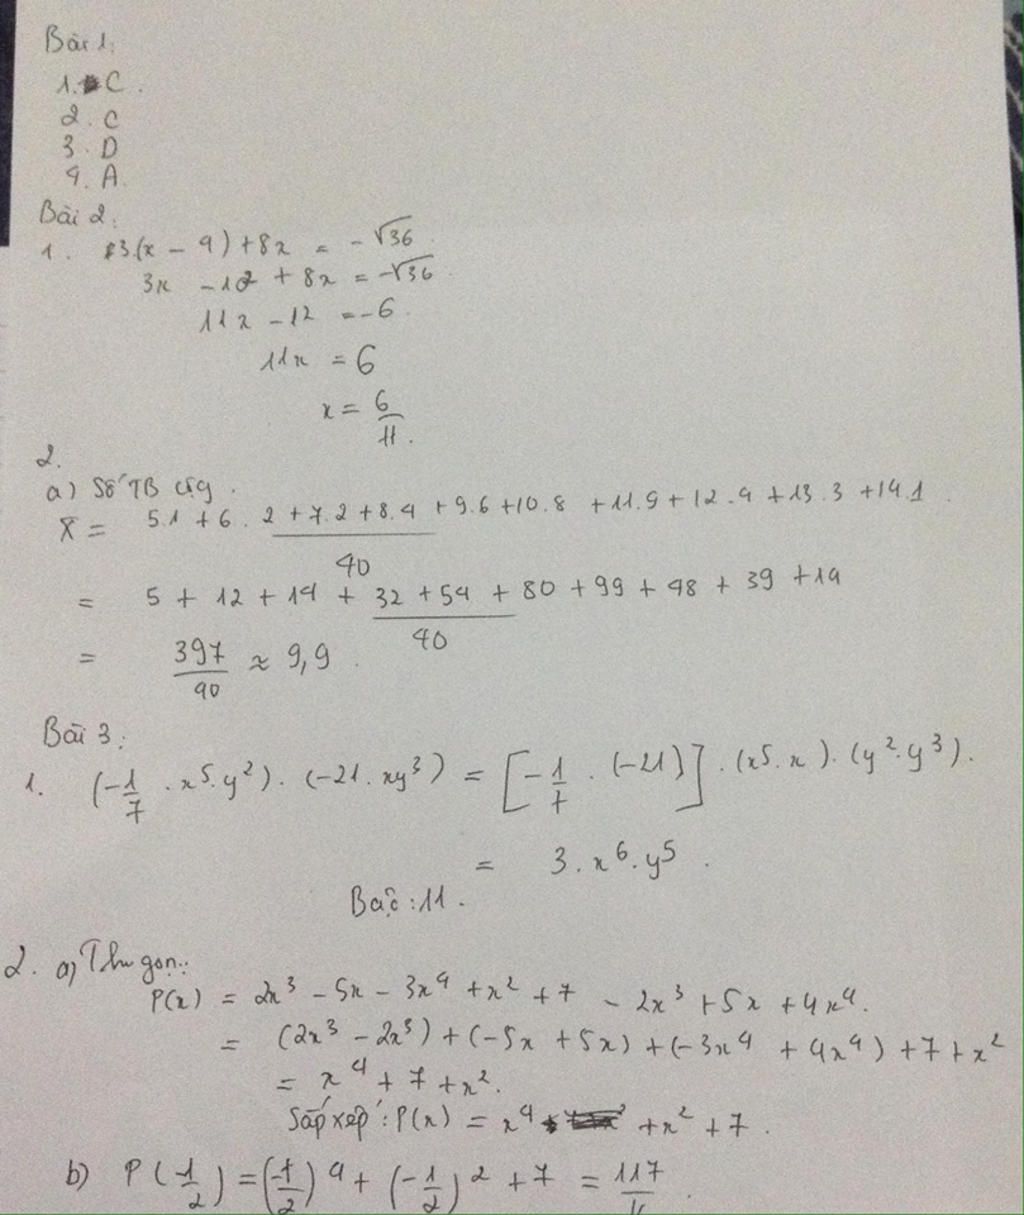 Bài 1:
1. C.
2. C
3. D
4. A.
Bài 2:
1. 3.(x - 4) + 8x = -√36
3x - 12 + 8x = -√36.
11x - 12 = -6.
11x = 6
x = 6/11.
2.
a) Số TB cộng.
X̄ = (5.1 + 6.2 + 7.2 + 8.4 + 9.6 + 10.8 + 11.9 + 12.4 + 13.3 + 14.1)/40.
= (5 + 12 + 14 + 32 + 54 + 80 + 99 + 48 + 39 + 14)/40
= 397/40 ≈ 9,9.
Bài 3:
1. (-1/7 . x⁵.y²).(-21.xy³) = [-1/7 . (-21)].(x⁵.x).(y².y³).
= 3.x⁶.y⁵.
Bậc: 11.
2. a) Thu gọn:
P(x) = 2x³ - 5x - 3x⁴ + x² + 7 - 2x³ + 5x + 4x⁴.
= (2x³ - 2x³) + (-5x + 5x) + (-3x⁴ + 4x⁴) + 7 + x²
= x⁴ + 7 + x².
Sắp xếp: P(x) = x⁴ + x² + 7.
b) P(-1/2) = (-1/2)⁴ + (-1/2)² + 7 = 117/